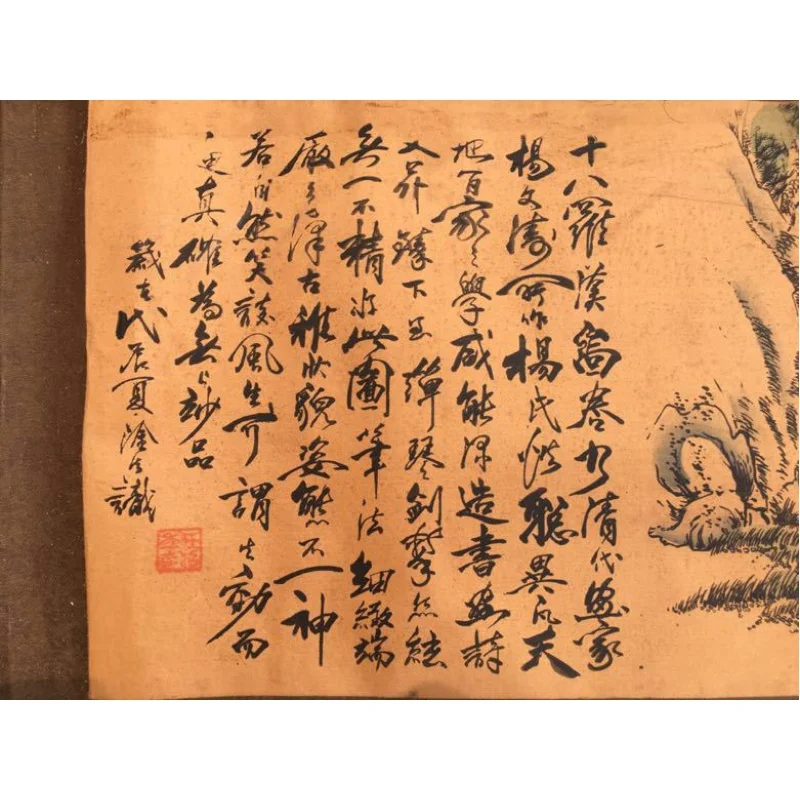 十八羅漢畵卷乃清代畫家
楊文濤所作楊氏性聰異凡天
地百家之學咸能深造書畫詩
入昇鎌下至彈琴劍擊然絃
無一不精淤此圖筆法細緻端
嚴之澤古雅狀貌姿態不一神
若自然笑談風生可謂生動而
逼真確為無上妙品
歲在戊辰夏塗之識